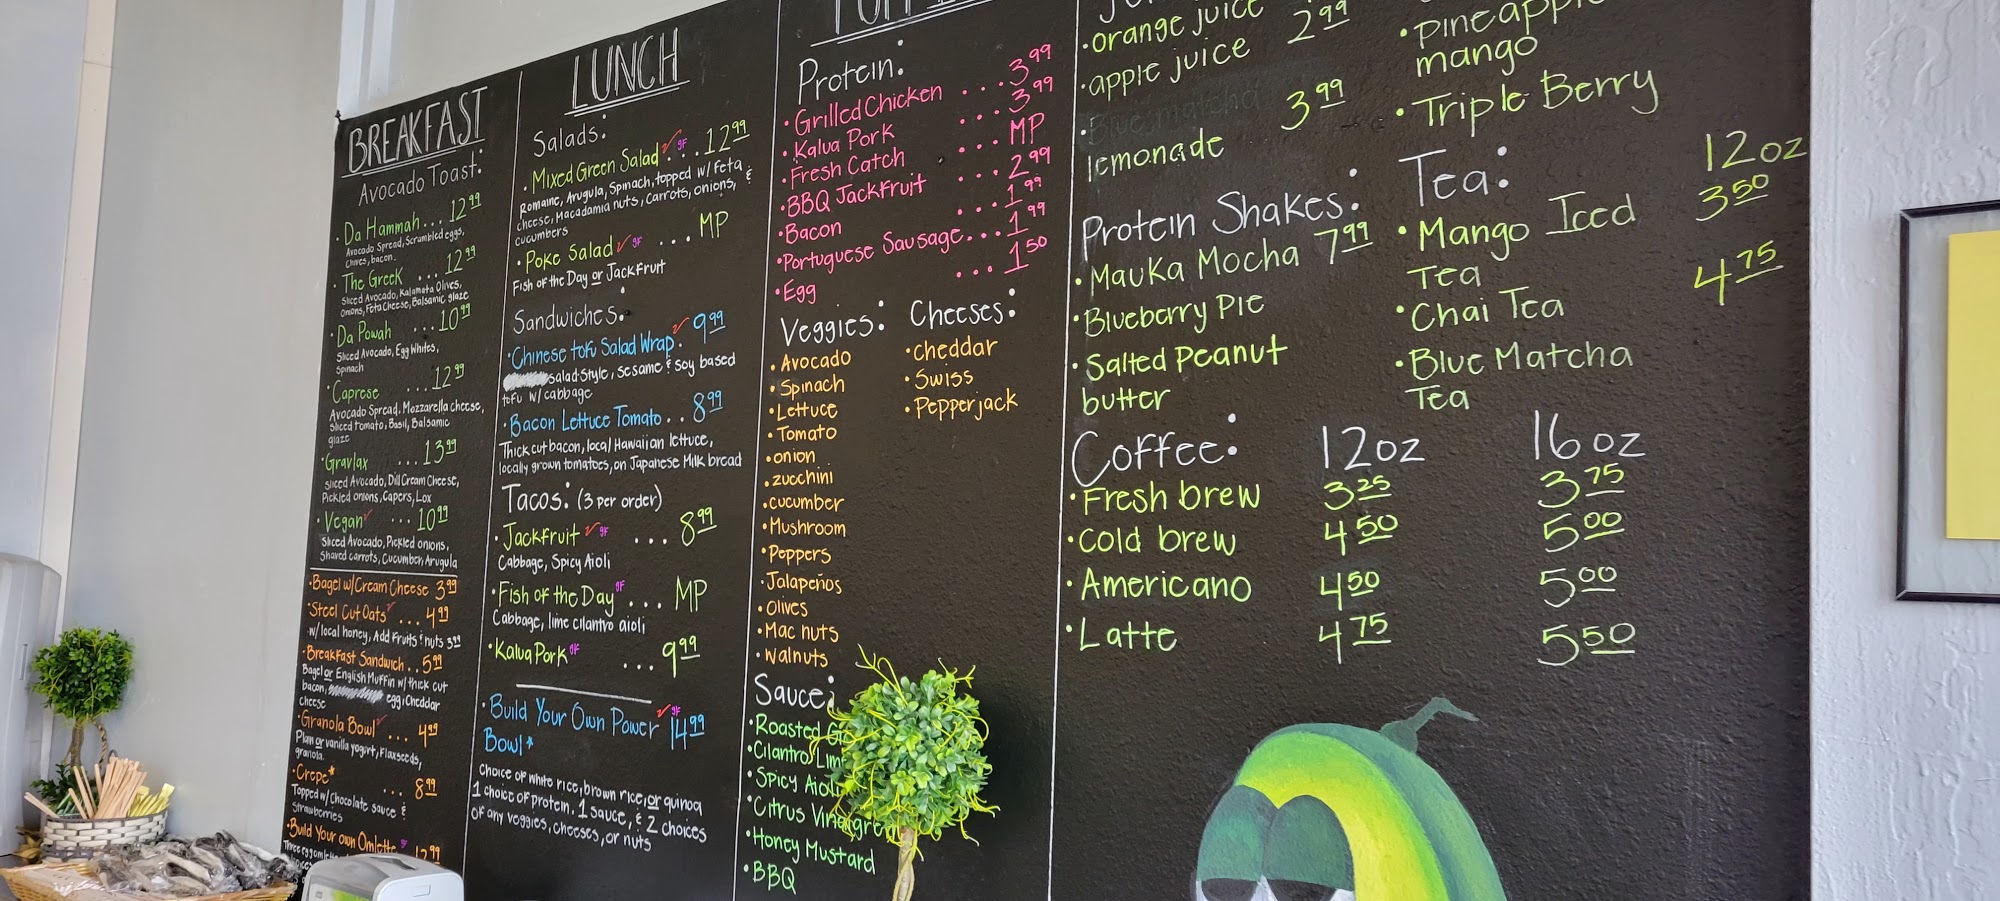 BREAKFAST
Avocado Toast:
• Da Hammah... 12.99
Avocado Spread, Scrambled eggs,
Chives, bacon.
• The Greek ... 12.99
Sliced Avocado, Kalamata Olives,
Onions, Feta Cheese, Balsamic glaze
• Da Powah ... 10.99
Sliced Avocado, Egg Whites,
Spinach
• Caprese ... 12.99
Avocado Spread, Mozzarella cheese,
Sliced tomato, Basil, Balsamic
glaze
• Gravlax ... 13.99
Sliced Avocado, Dill Cream Cheese,
Pickled onions, Capers, Lox
• Vegan ✓ ... 10.99
Sliced Avocado, Pickled onions,
Shaved carrots, Cucumber, Arugula
• Bagel w/Cream Cheese 3.99
• Steel Cut Oats ✓ ... 4.99
w/ local honey, Add Fruits & nuts 3.99
• Breakfast Sandwich .. 5.99
Bagel or English Muffin w/ thick cut
bacon, egg & Cheddar
cheese
• Granola Bowl ✓ ... 4.99
Plain or vanilla yogurt, Flaxseeds,
granola.
• Crepe* ... 8.99
Topped w/ Chocolate sauce &
Strawberries
• Build Your own Omlette GF 12.99
Three egg
LUNCH
Salads:
• Mixed Green Salad ✓ GF ... 12.99
Romaine, Arugula, Spinach, topped w/ Feta
cheese, Macadamia nuts, Carrots, onions, &
cucumbers
• Poke Salad ✓ GF ... MP
Fish of the Day or Jackfruit
Sandwiches:
• Chinese tofu Salad Wrap ✓. 9.99
salad-Style, sesame & soy based
tofu w/ cabbage
• Bacon Lettuce Tomato .. 8.99
Thick cut bacon, local Hawaiian lettuce,
locally grown tomatoes, on Japanese Milk bread
Tacos: (3 per order)
• Jackfruit ✓ GF ... 8.99
Cabbage, Spicy Aioli
• Fish of the Day GF ... MP
Cabbage, lime cilantro aioli
• Kalua Pork GF ... 9.99
• Build Your Own Power ✓ GF 14.99
Bowl*
Choice of white rice, brown rice, or quinoa
1 choice of protein, 1 sauce, & 2 choices
of any veggies, cheeses, or nuts
Protein:
• Grilled Chicken ... 3.99
• Kalua Pork ... 3.99
• Fresh Catch ... MP
• BBQ Jackfruit ... 2.99
• Bacon ... 1.99
• Portuguese Sausage... 1.99
• Egg ... 1.50
Veggies:
• Avocado
• Spinach
• Lettuce
• Tomato
• onion
• zucchini
• cucumber
• Mushroom
• Peppers
• Jalapeños
• Olives
• Mac nuts
• Walnuts
Cheeses:
• cheddar
• Swiss
• Pepperjack
Sauce:
• Roasted
• Cilantro Lim
• Spicy Aioli
• Citrus Vinaigre
• Honey Mustard
• BBQ
• orange juice 2.99
• apple juice
• Blue matcha
lemonade 3.99
• Pineapple
mango
• Triple Berry
Protein Shakes:
• Mauka Mocha 7.99
• Blueberry Pie
• Salted Peanut
butter
Tea: 12oz
• Mango Iced 3.50
Tea
• Chai Tea 4.75
• Blue Matcha
Tea
Coffee: 12oz 16oz
• Fresh brew 3.25 3.75
• Cold brew 4.50 5.00
• Americano 4.50 5.00
• Latte 4.75 5.50